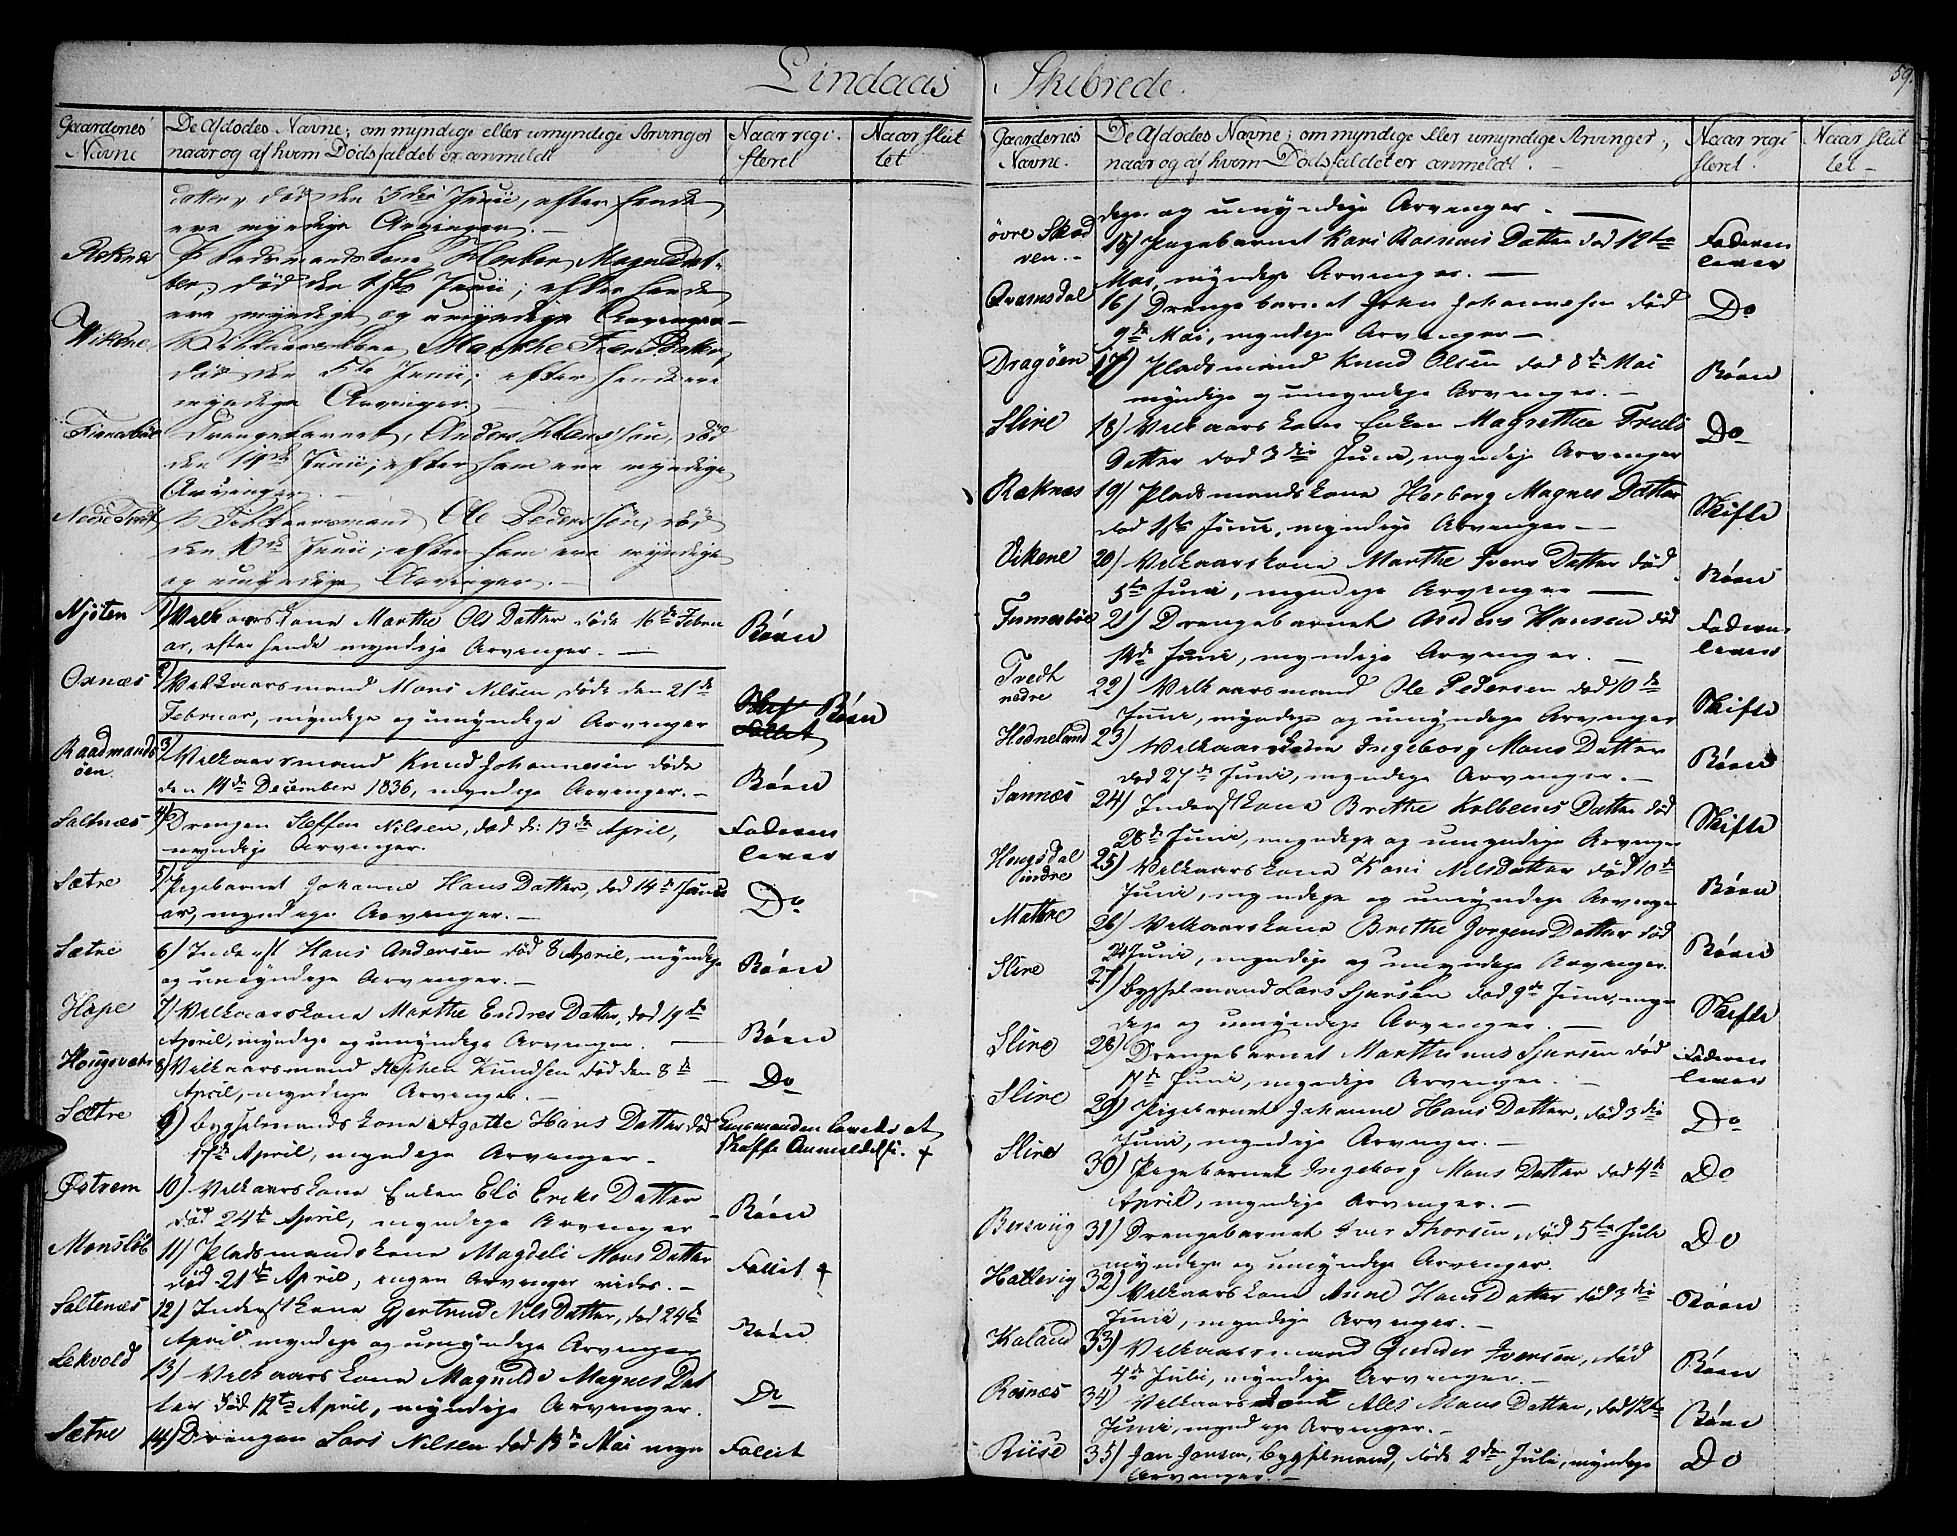 Lindaas Skibrede.
59.
Gaardenes Navne
De Afdødes Navne; om myndige eller umyndige Arvinger
naar og af hvem Dødsfaldet er anmeldt
Naar regi-
steret
Naar slut
tet
datter, død den 3die Junii, efter hende
ere myndige Arvinger. -
Reknes Pladsmandskone Herber Magne Dat-
ter, død den 1ste Junii; efter hende
ere myndige og umyndige Arvinger -
Wikene Vilkaarskone Marthe Ivers Datter,
død den 5te Junii; efter hende ere
myndige Arvinger. -
Drengebarnet, Anders Hanssøn, død
den 14de Junii; efter ham ere myndige
Arvinger. -
Nedre Tvedt Vilkaarsmand Ole Pederssøn, død
den 10de Junii; efter ham ere myndige
og umyndige Arvinger. -
Njøten 1) Velkaarskone Marthe Ols Datter døde 16de Febru
ar, efter hende myndige Arvenger. - Røen
Oxnæs 2) Velkaarsmand Mons Nilsen døde den 21de
Februar, myndege og umyndege Arvenger Røen
Fallit
Raadmands
øen 3) Velkaarsmand Knud Johannesen døde
den 14de December 1836, myndege Arvenger. - Røen
Saltnæs 4) Drengen Steffen Nilsen, død d: 13de April,
myndige Arvenger. Faderen
lever
Sætre 5) Pegebarnet Johanne Hans Datter, død 14de Janu
ar, myndege Arvenger. - Do
Sætre 6) Inderst Hans Andersen død 8 April, myndege
og umyndege Arvenger. - Røen
Hope 7) Velkaarskone Marthe Endres Datter, død 19de
April, myndege og umyndege Arvenger. - Røen
Hougsvatn 8) Velkaarsmand Stephen Knudsen død den 8de
April, myndege Arvenger. - Do
Sætre 9) Bygselmandskone Agatte Hans Datter død
17de April, myndege Arvenger - Enkemanden lovede at
skaffe Anmeldelse. +
Østrem 10) Velkaarskone Enken Elø Ereks Datter
død 24de April, myndege Arvenger - Røen
Monsløb 11) Pladsmandskone Magdeli Mons Datter
død 21de April, ingen Arvenger vides. - Fallit +
Saltenæs 12) Inderstkone Gjertrud Nils Datter, død 24de
April myndege og umyndege Arvenger Røen
Lekvold 13) Velkaarskone Magnilde Magnes Dat
ter død 12te April, myndige Arvenger. Do
Sætre 14) Drengen Lars Nilsen død 13de Mai myn Fallit
Gaardenes
Navne.
De Afdødes Navne; om myndige eller umyndige Arvinger,
naar og af hvem Dødsfaldet er anmeldt. -
Naar regi
steret.
Naar slut
tet -
dege og umyndige Arvenger. -
øvre Skod
ven. - 15) Pegebarnet Kari Rasmus Datter død 12te
Mai, myndige Arvenger. - Faderen
lever
Qvamsdal 16) Drengebarnet John Johannesen død
9de Mai, myndege Arvenger - Do
Dragøen 17) Pladsmand Knud Olsen død 8de Mai
myndige og umyndige Arvenger. - Røen
Slire 18) Velkaarskone Enken Magrethe Truls
Datter død 3die Juni, myndige Arvenger Do
Reknæs 19) Pladsmandskone Herborg Magnes Datter
død 1ste Juni, myndige Arvenger - Skifte
Vikene 20) Velkaarskone Marthe Ivers Datter død
5te Juni, myndige Arvenger - Røen
21) Drengebarnet Anders Hansen død
14de Juni, myndige Arvenger. - Faderen
lever
Tvedt
nedre 22) Velkaarsmand Ole Pedersen død 10de
Juni, myndige og umyndege Arvenger Skifte
Hodneland 23) Velkaarskone Ingeborg Mons Datter
død 27de Juni, myndege Arvenger. - Røen
Sannæs 24) Inderstkone Brethe Kolbeens Datter død
28de Juni, myndege og umyndige Arvenger Skifte
Hougsdal
indre 25) Velkaarskone Kari Nils Datter død 10de
Juni, myndege og umyndege Arvenge Røen
Mattre 26) Velkaarskone Brethe Jørgens Datter død
24 Juni, myndige og umyndige Arvenger. Røen
Slire 27) Bygselmand Lars Sjursen død 9de Juni, myn
dege og umyndege Arvenger. - Skifte
Slire 28) Drengebarnet Marthinus Sjursen død
17de Juni, myndige Arvenger. - Faderen
lever
Slire 29) Pigebarnet Johanne Hans Datter, død 3die
Juni, myndige Arvenger. - Do
Slire 30) Pegebarnet Ingeborg Mons Datter død 4de
April, myndege Arvenger. - Do
Bersviig 31) Drengebarnet Iver Thorsen, død 5te Juli
myndege og umyndige Arvenger. Do
Hattevig 32) Velkaarskone Anne Hans Datter død 3die
Juni, myndige Arvenger. - Røen
Kaland 33) Velkaarsmand Gunder Iversen, død
4de Juli, myndige Arvenger. - Røen
Risnæs 34) Velkaarskone Ales Mons Datter, død 12te
Juni, myndege Arvenger. - Røen
Riise 35) Jan Jansen, Bygselmand, døde 2den Juli, myndege
Arvenger. - Do